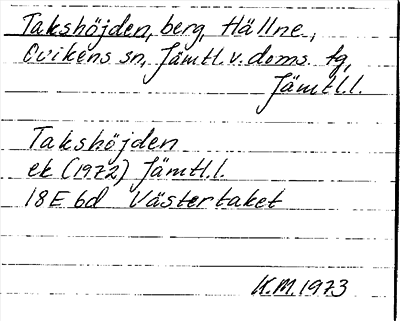 Takshöjden, berg, Hällne,
Ovikens sn, Jämtl. v. doms. fg,
Jämtl. l.
Takshöjden
ek (1972) Jämtl. l.
18E 6d Västertaket
K.M. 1973